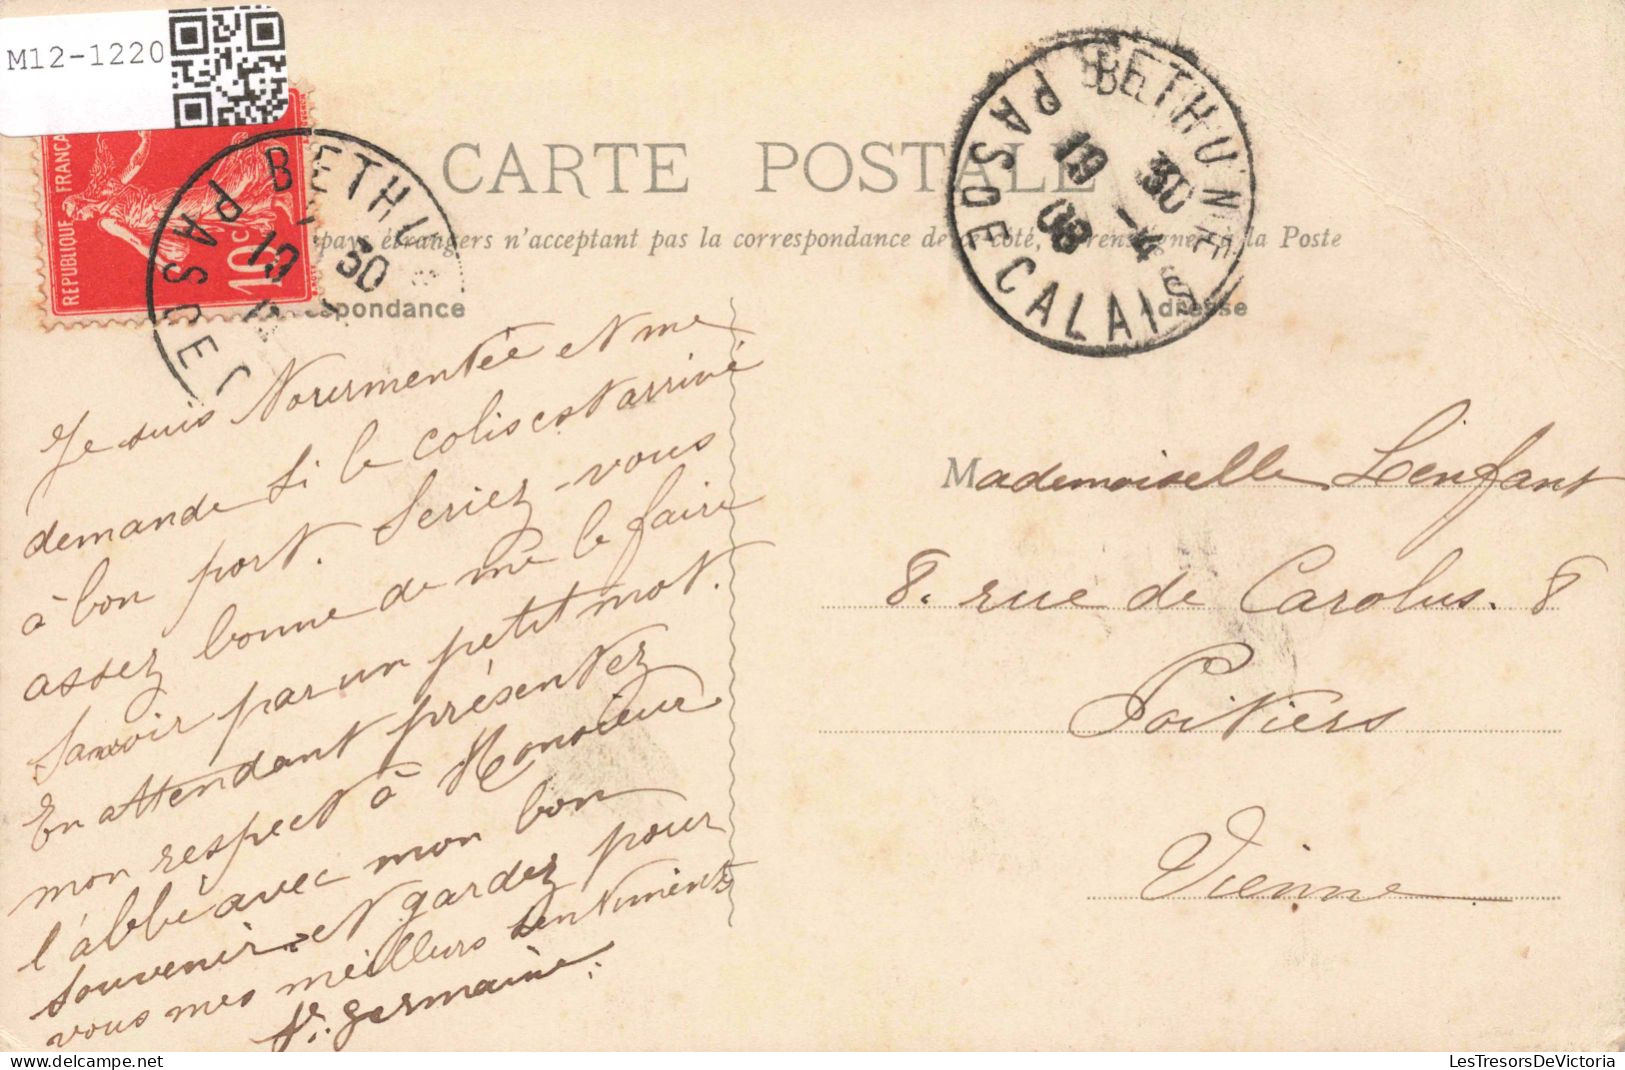 M12-1220
REPUBLIQUE FRANÇA
10c
BETHU
PAS DE
19 30
BETHUNE
PAS DE CALAIS
19 30
08 -4
CARTE POSTALE
pays étrangers n'acceptant pas la correspondance de ce côté, se renseigner à la Poste
spondance
Adresse
Je suis Nourmentée et me
demande si le colis est arrivé
à bon port. Seriez-vous
assez bonne de me le faire
savoir par un petit mot.
En attendant présentez
mon respect à Monsieur
l'abbé avec mon bon
souvenir et gardez pour
vous mes meilleurs sentiments
Sr. Germaine.
Mademoiselle Lenfant
8. rue de Carolus. 8
Poitiers
Vienne
LesTresorsDeVictoria